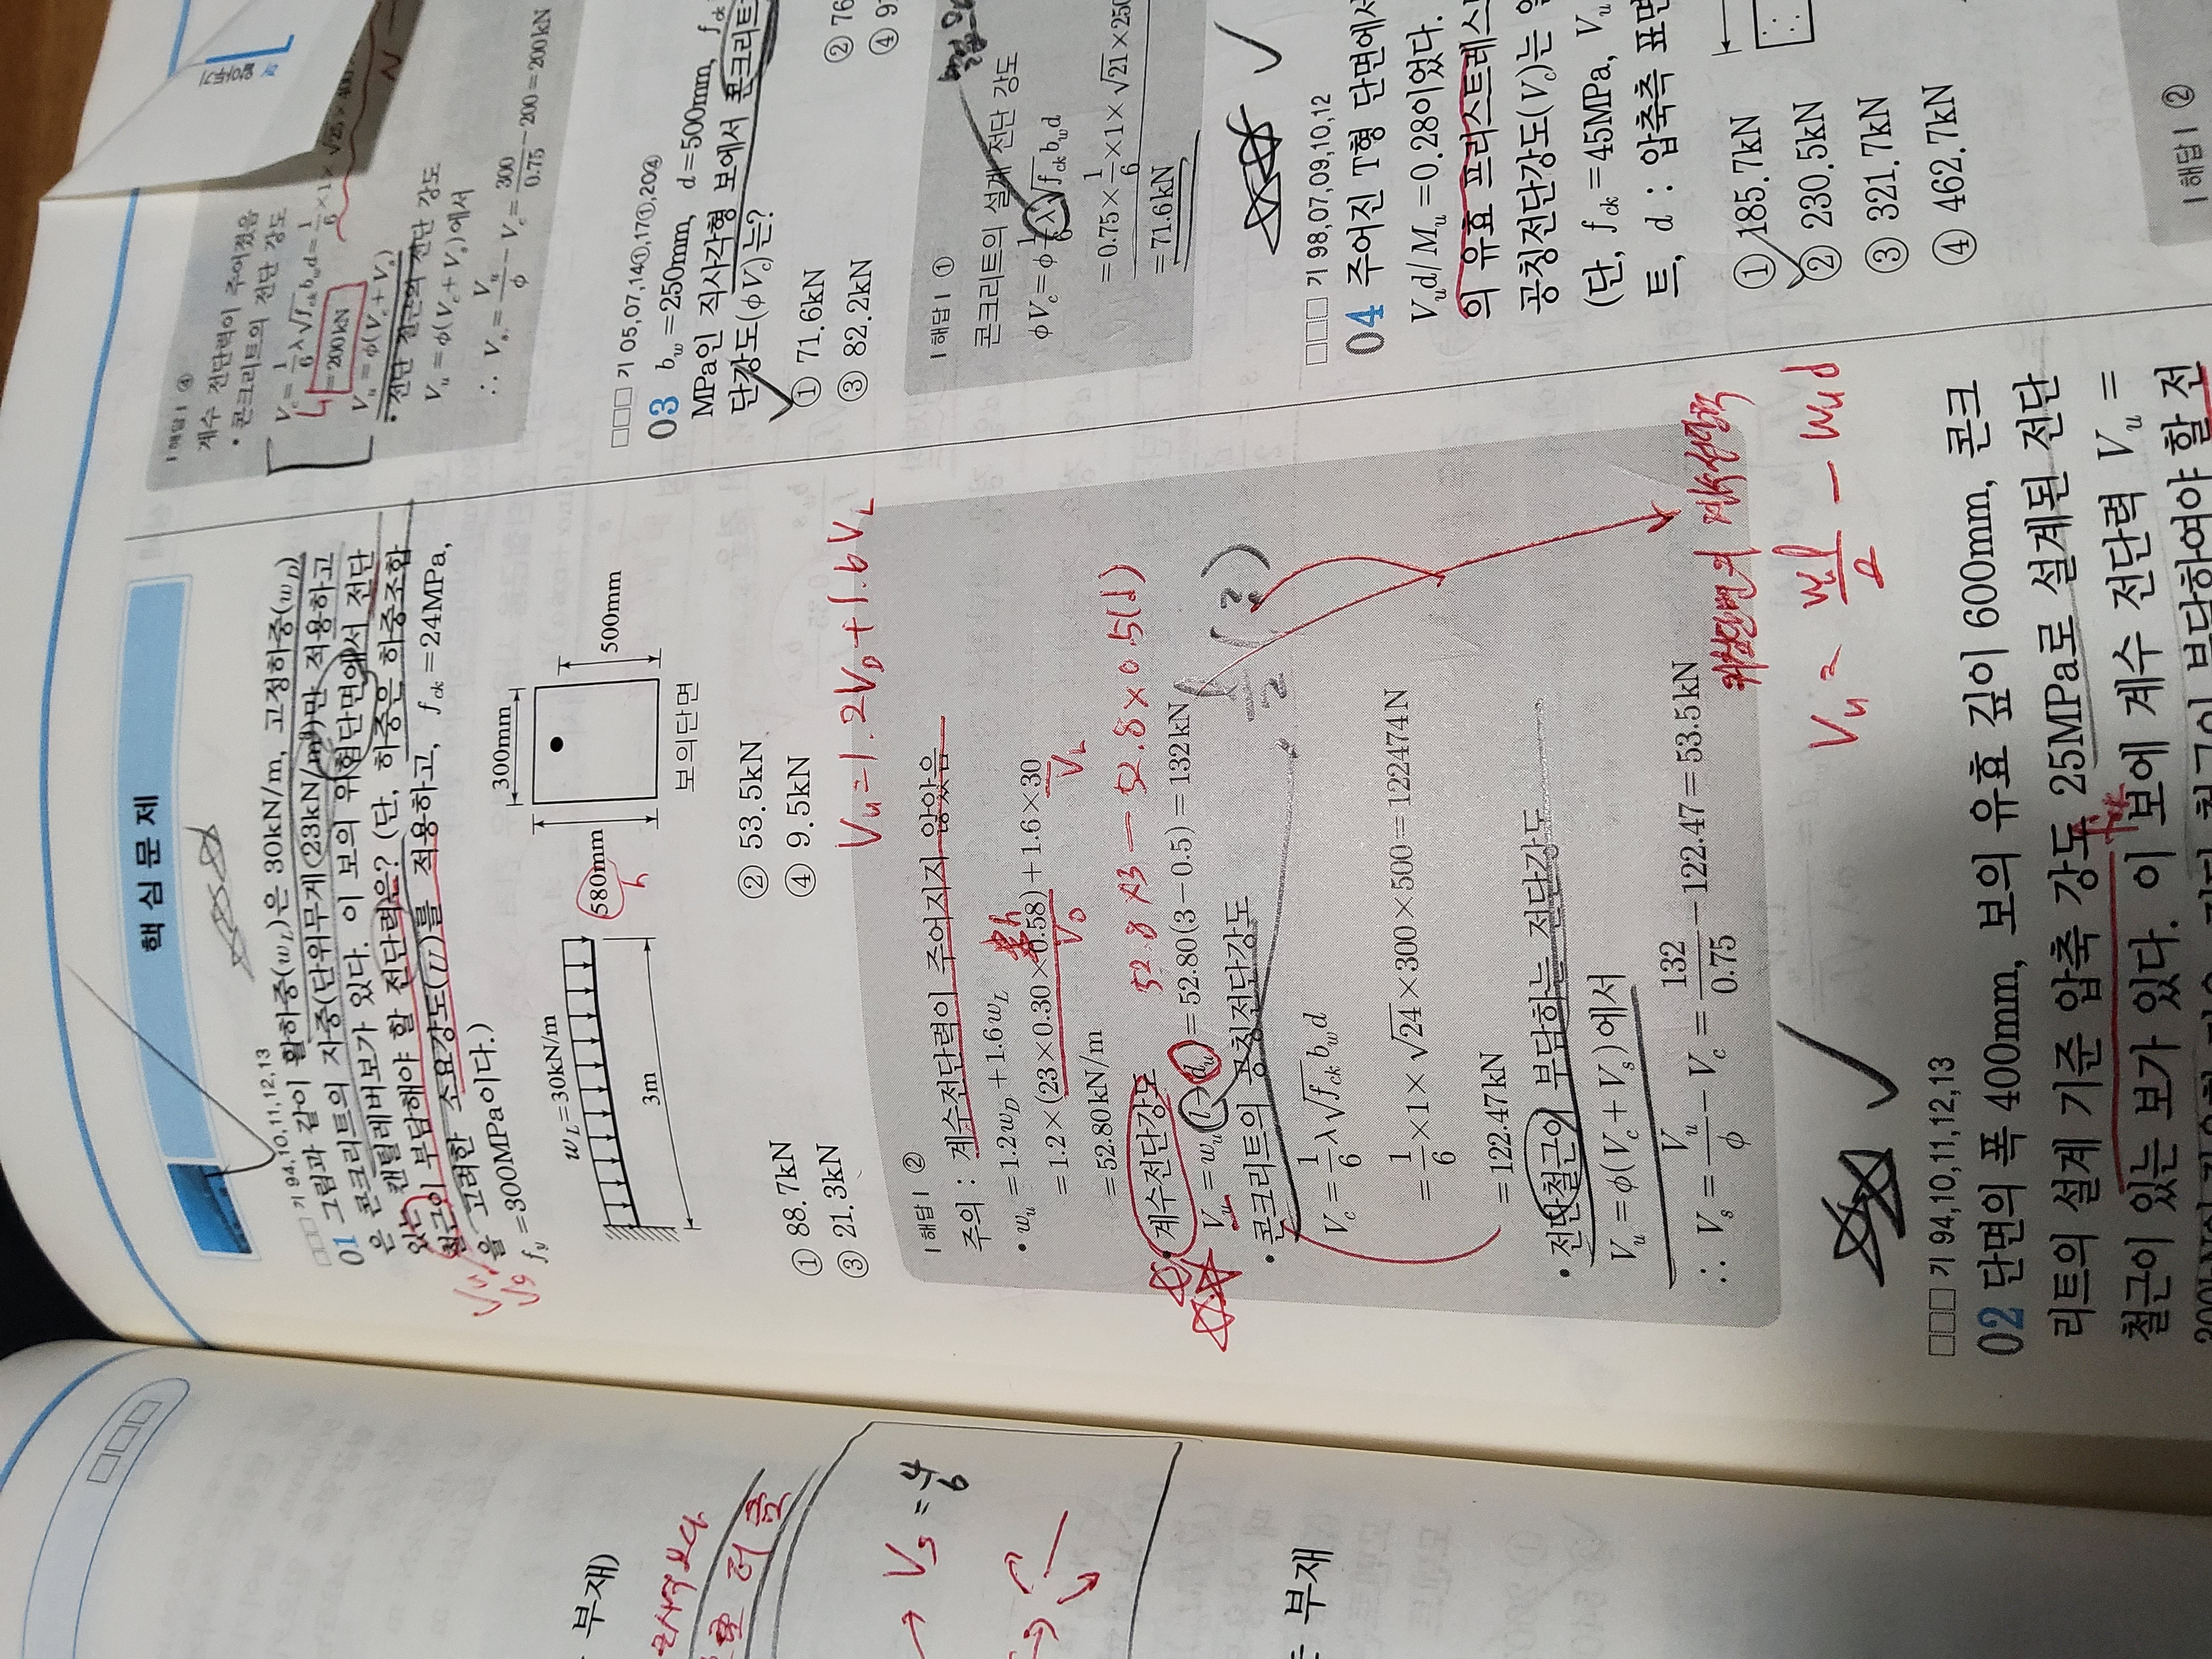 핵심문제
□□□ 기 94,10,11,12,13
01 그림과 같이 활하중(w_L)은 30kN/m, 고정하중(w_D)
은 콘크리트의 자중(단위무게(23kN/m³)만 적용하고
있는 캔틸레버보가 있다. 이 보의 위험단면에서 전단
철근이 부담해야 할 전단력은? (단, 하중은 하중조합
을 고려한 소요강도(U)를 적용하고, f_ck=24MPa,
f_y=300MPa이다.)
w_L=30kN/m
3m
300mm
580mm
h
500mm
보의단면
① 88.7kN
② 53.5kN
③ 21.3kN
④ 9.5kN
V_u=1.2V_D+1.6V_L
| 해답 | ②
주의 : 계수전단력이 주어지지 않았음
• w_u=1.2w_D+1.6w_L
=1.2×(23×0.30×0.58)+1.6×30
h
V_D
V_L
=52.80kN/m
52.8×3-52.8×0.5(d)
• 계수전단강도
V_u=w_u(l-d_u)=52.80(3-0.5)=132kN
• 콘크리트의 공칭전단강도
V_c=1/6 λ√f_ck b_w d
=1/6×1×√24×300×500=122474N
=122.47kN
• 전단철근이 부담하는 전단강도
V_u=φ(V_c+V_s)에서
∴ V_s=V_u/φ-V_c=132/0.75-122.47=53.5kN
위험단면의 계수전단력
□□□ 기 94,10,11,12,13
02 단면의 폭 400mm, 보의 유효 깊이 600mm, 콘크
리트의 설계 기준 압축 강도 25MPa로 설계된 전단
철근이 있는 보가 있다. 이 보에 계수 전단력 V_u=
| 해답 | ④
계수 전단력이 주어졌음
• 콘크리트의 전단 강도
V_c=1/6 λ√f_ck b_w d=1/6×1×√25×400×
=200kN
V_u=φ(V_c+V_s)
• 전단 철근의 전단 강도
V_u=φ(V_c+V_s)에서
∴ V_s=V_u/φ-V_c=300/0.75-200=200kN
□□□ 기 05,07,14①,17①,20④
03 b_w=250mm, d=500mm, f_ck
MPa인 직사각형 보에서 콘크리트
단강도(φV_c)는?
① 71.6kN
② 76
③ 82.2kN
④ 9
| 해답 | ①
콘크리트의 설계 전단 강도
φV_c=φ1/6 λ√f_ck b_w d
=0.75×1/6×1×√21×250
=71.6kN
□□□ 기 98,07,09,10,12
04 주어진 T형 단면에서
V_u d/M_u=0.28이었다.
의 유효 프리스트레스
공칭전단강도(V_c)는 얼
(단, f_ck=45MPa, V_u
트, d : 압축측 표면
① 185.7kN
② 230.5kN
③ 321.7kN
④ 462.7kN
| 해답 | ②
부재)
부재